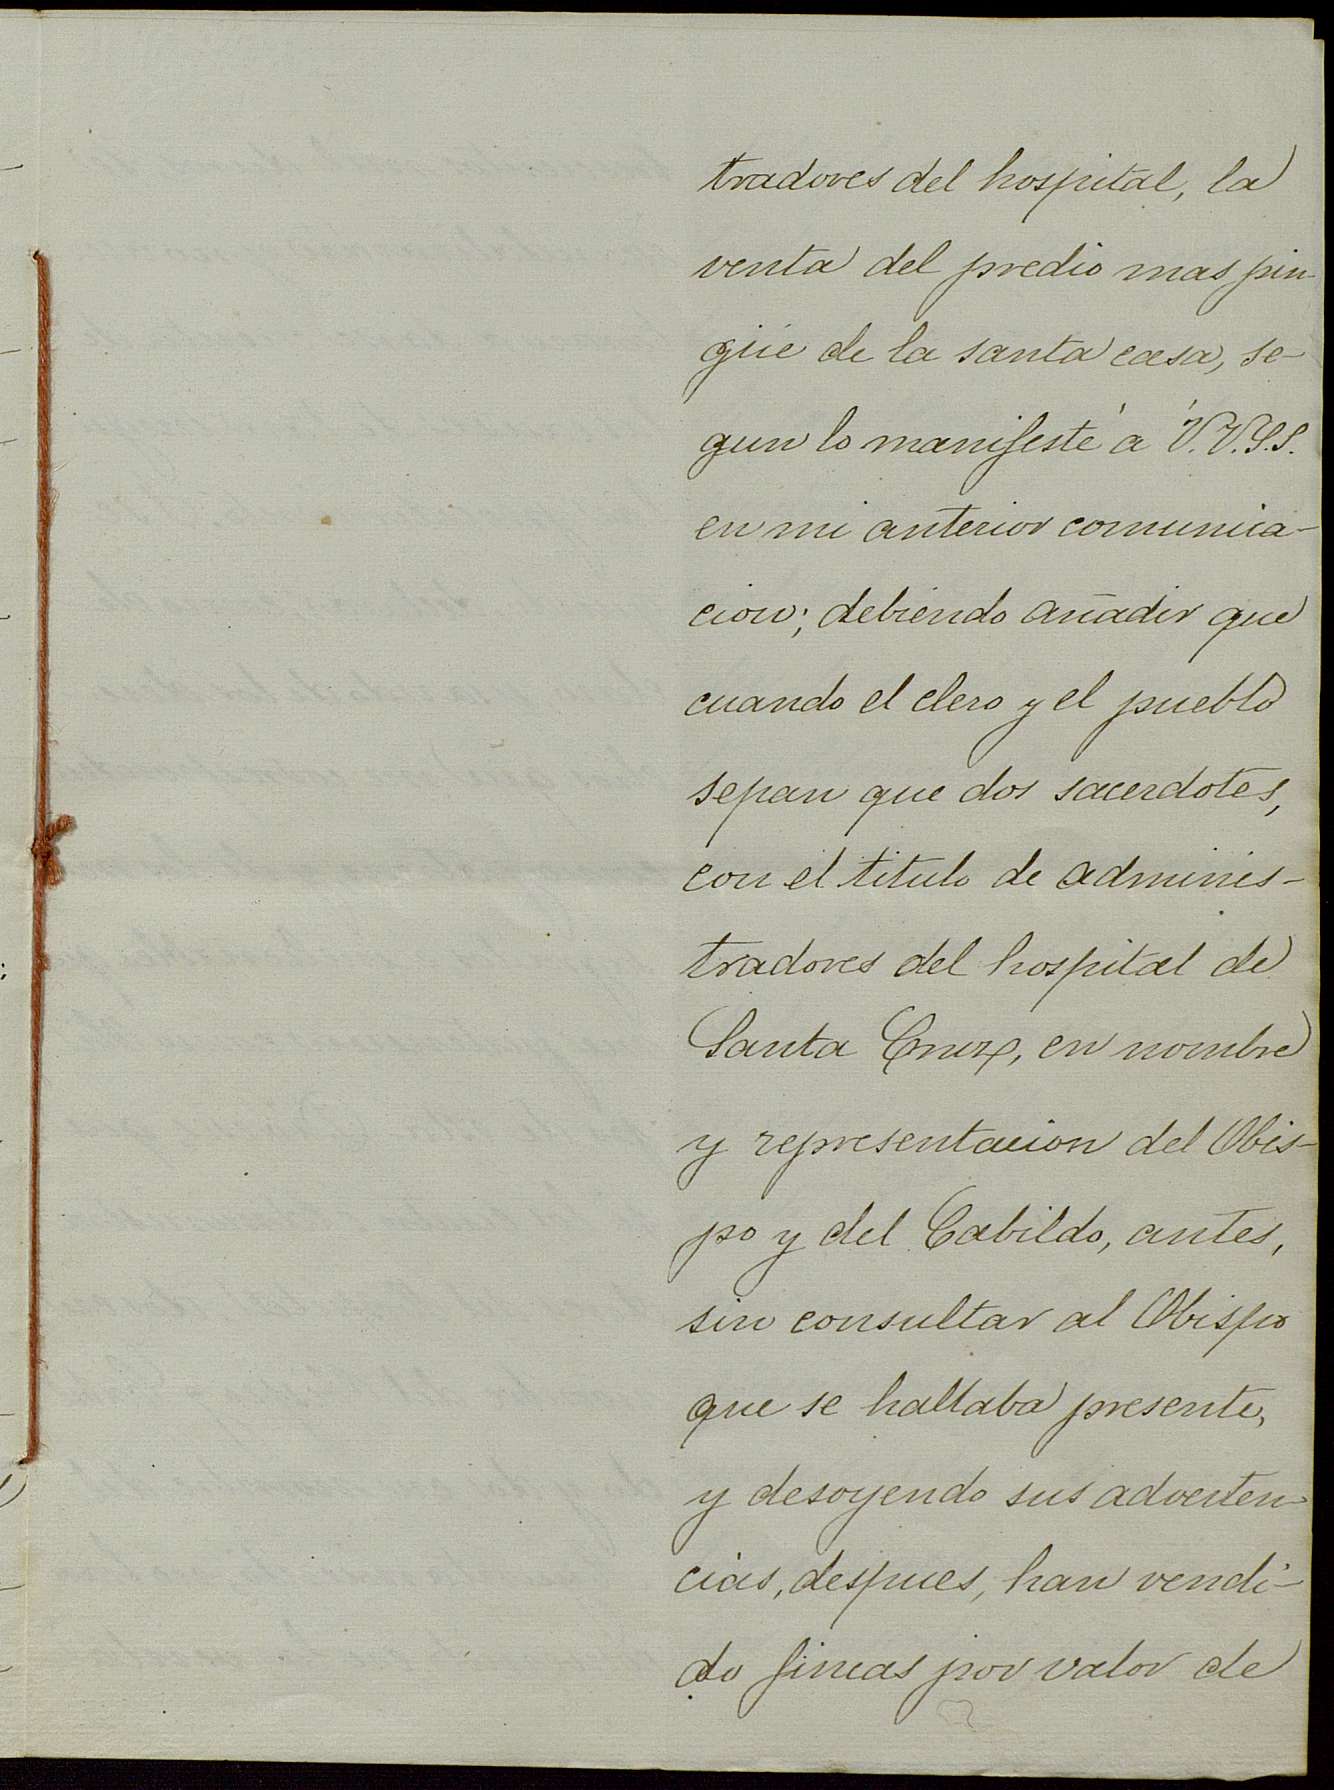 tradores del hospital, la
venta del predio mas pin-
güe de la santa casa, se-
gun lo manifesté á V.V.S.S.
en mi anterior comunica-
cion; debiendo añadir que
cuando el clero y el pueblo
sepan que dos sacerdotes,
con el titulo de adminis-
tradores del hospital de
Santa Cruz, en nombre
y representacion del Obis-
po y del Cabildo, antes,
sin consultar al Obispo
que se hallaba presente,
y desoyendo sus adverten-
cias, despues, han vendi-
do fincas por valor de